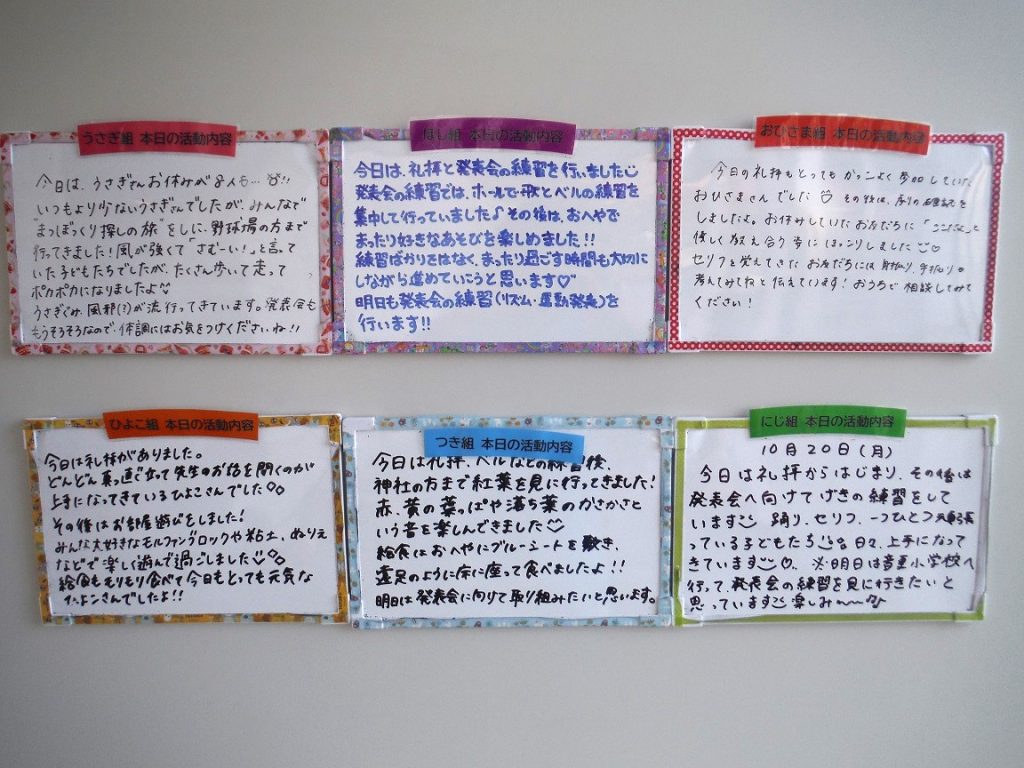 うさぎ組 本日の活動内容
今日は、うさぎさんお休みが8人も…!!
いつもより少ないうさぎさんでしたが、みんなで
"まつぼっくり探しの旅"をしに、野球場の方まで
行ってきました!風が強くて「さむーい!」と言って
いた子どもたちでしたが、たくさん歩いて走って
ポカポカになりましたよ
うさぎぐみ、風邪(?)が流行ってきています。発表会も
もうそろそろなので、体調にはお気をつけくださいね!!
ほし組 本日の活動内容
今日は、礼拝と発表会の練習を行いました
発表会の練習では、ホールで歌とベルの練習を
集中して行っていました♪その後は、おへやで
まったり好きなあそびを楽しめました!!
練習ばかりをはなく、まったり過ごす時間も大切に
しながら進めていこうと思います♡
明日も発表会の練習(リズム・運動発表)を
行います!!
おひさま組 本日の活動内容
今日の礼拝もとってもかっこよく参加していた
おひさまさんでした その後は、
しましたよ。お休みしていたお友だちに
優しく教え合う姿にほっこりしました♡
セリフを覚えてきたお友だちには
考えてみてねと伝えています!おうちで相談してみて
ください!
ひよこ組 本日の活動内容
今日は礼拝がありました。
どんどん真っ直ぐ立って先生のお話を聞くのが
上手になってきているひよこさんでした♡♡
その後はお部屋遊びをしました!
みんな大好きなモルファンブロックや粘土、ぬりえ
などで楽しく遊んで過ごしました♡♡
給食ももりもり食べて今日もとっても元気な
ひよこさんでしたよ!!
つき組 本日の活動内容
今日は礼拝、ベルなどの練習後、
神社の方まで紅葉を見に行ってきました!
赤、黄の葉っぱや落ち葉のかさかさと
いう音を楽しんできました
給食はおへやにブルーシートを敷き、
遠足のように床に座って食べましたよ!!
明日は発表会に向けて取り組みたいと思います。
にじ組 本日の活動内容
10月20日(月)
今日は礼拝からはじまり、その後は
発表会へ向けてげきの練習をして
います 踊り、セリフ、一つひとつ頑張
っている子どもたち 日々、上手になって
きています♡。※明日は音更小学校へ
行って、発表会の練習を見に行きたいと
思っています 楽しみ〜〜♪